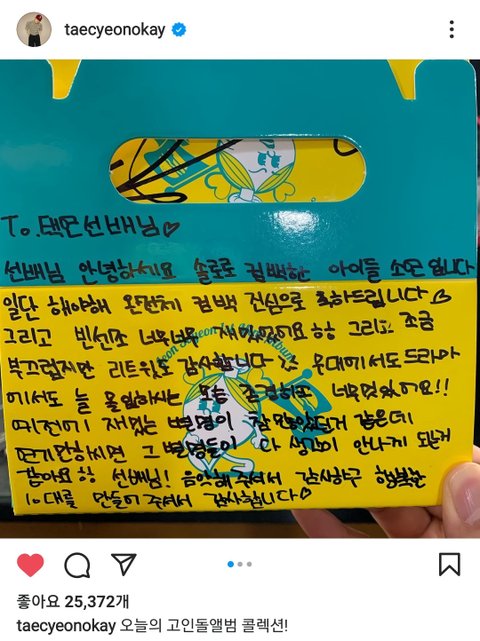 taecyeonokay
To. 택연선배님♡
선배님 안녕하세요 솔로로 컴백한 아이들 소연 입니다
일단 해야해 완전체 컴백 진심으로 축하드립니다♡
그리고 빈센조 너무너무 재밌었어요ㅎㅎ 그리고 조금
부끄럽지만 리트윗도 감사합니다 무대에서도 드라마
에서도 늘 몰입하시는 모습 존경하고 너무멋있어요!!
예전에 재밌는 별명이 참 많았던거 같은데
연기만하시면 그 별명들이 다 생각이 안나게 되는거
같아요ㅎㅎ 선배님! 음악해 주셔서 감사하구 행복한
10대를 만들어 주셔서 감사합니다♡
좋아요 25,372개
taecyeonokay 오늘의 고인돌앨범 콜렉션!